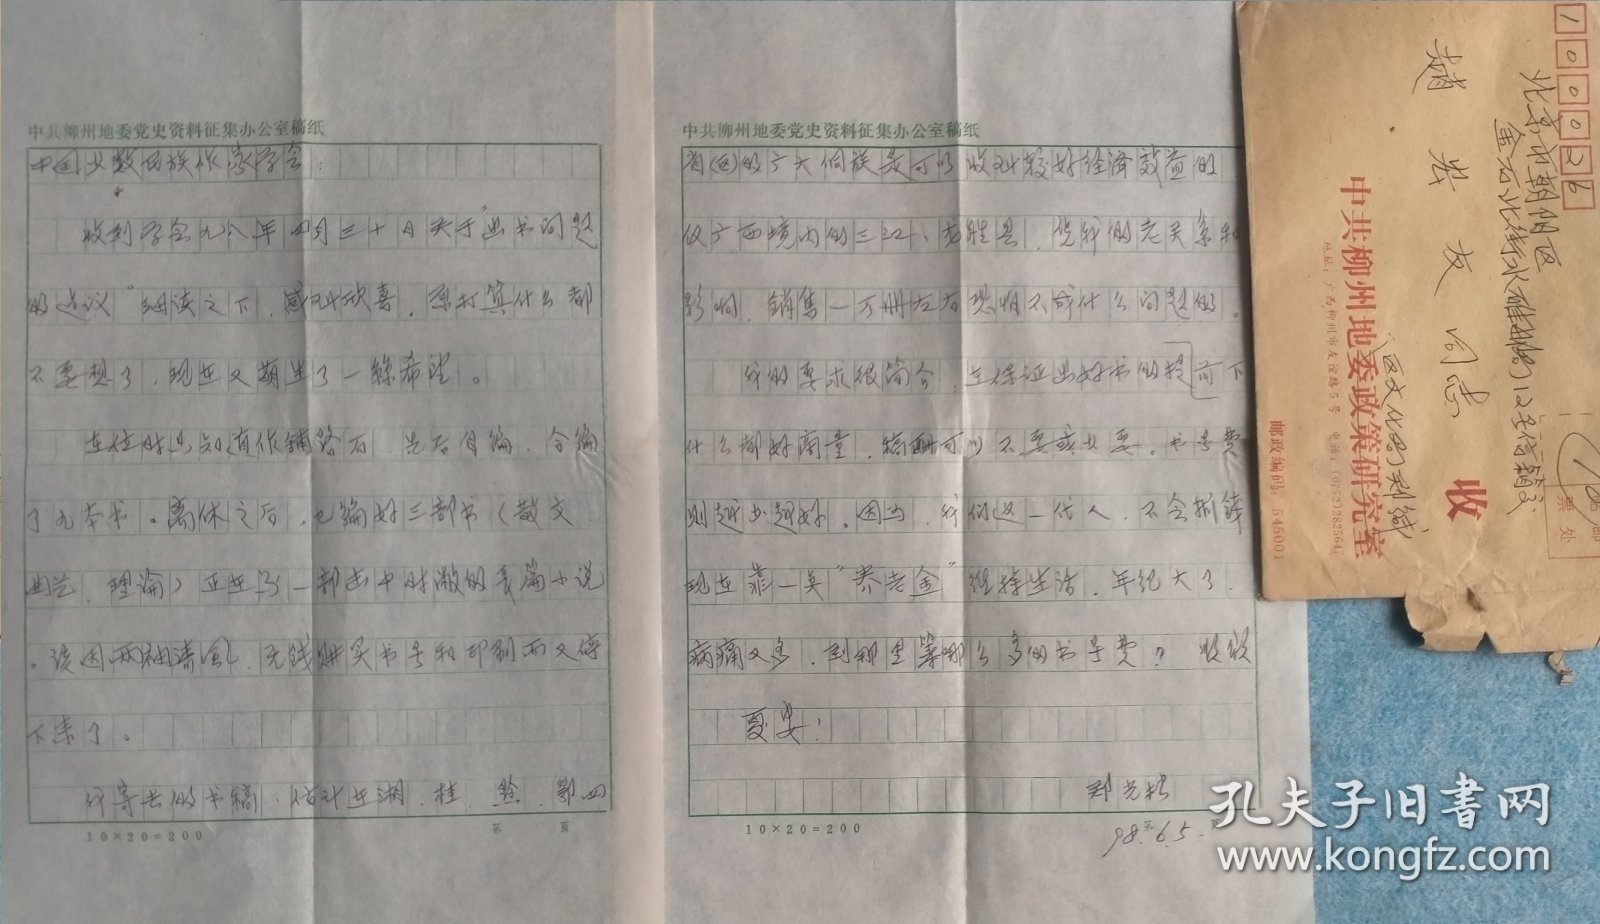 中共柳州地委党史资料征集办公室稿纸
中国少数民族作家学会：
收到学会九八年四月三十日关于“出书问题
的建议”细读之下，感到欣喜，原打算什么都
不要想了，现在又萌生了一丝希望。
在任时只知道作铺路石，先后自编、合编
了九本书。离休之后，已编好三部书（散文、
曲艺、理论）正在写一部击中时敝的长篇小说
。该因两袖清风，无钱购买书号和印刷而又停
下来了。
我寄去的书稿，估计在湖、桂、黔、鄂四
10×20=200
第 页
中共柳州地委党史资料征集办公室稿纸
省(区)的广大侗族是可以收到较好经济效益的，
仅广西境内的三江、龙胜县，凭我的老关系和
影响，销售一万册左右恐怕不成什么问题的。
我的要求很简单，在保证出好书的提前下
什么都好商量，稿酬可以不要或少要。书号费
则越少越好。因为，我们这一代人，不会抓钱
现在靠一点“养老金”维持生活，年纪大了，
病痛又多，到那里筹那么多的书号费？ 收
夏安！
郑光松
10×20=200
第 页
98.6.5.
100026
北京市朝阳区
金台北街水碓 12号信箱
赵 友同志
收
中共柳州地委政策研究室
地址：广西柳州市友谊路5号 电话：(0772)282564
邮政编码：545001
邮
票 处
孔夫子旧书网
www.kongfz.com